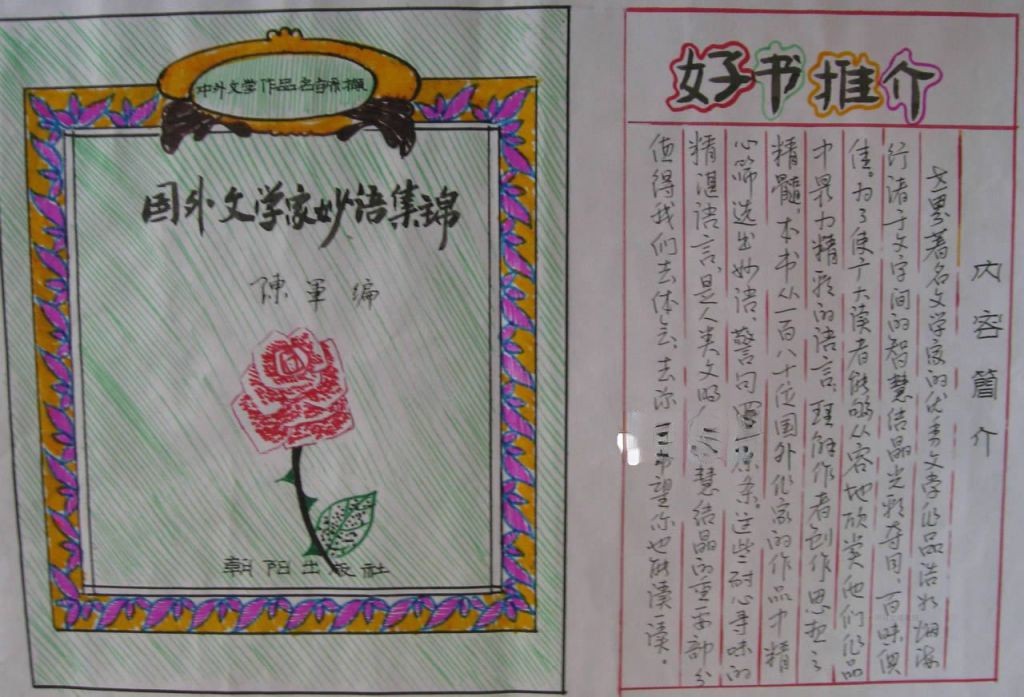 中外文学作品名句采撷
国外文学家妙语集锦
陳军编
朝阳出版社
好书推介
内容简介
世界著名文学家的优秀文学作品浩如烟海
行诸于文字间的智慧结晶光彩夺目,百味俱
佳。为了使广大读者能够从容地欣赏他们作品
中最为精彩的语言,理解作者创作思想之
精髓,本书从一百八十位国外作家的作品中精
心筛选出妙语、警句条。这些耐心寻味的
精湛语言,是人类文明慧结晶的重要部分
值得我们去体会。去希望你也能读读。